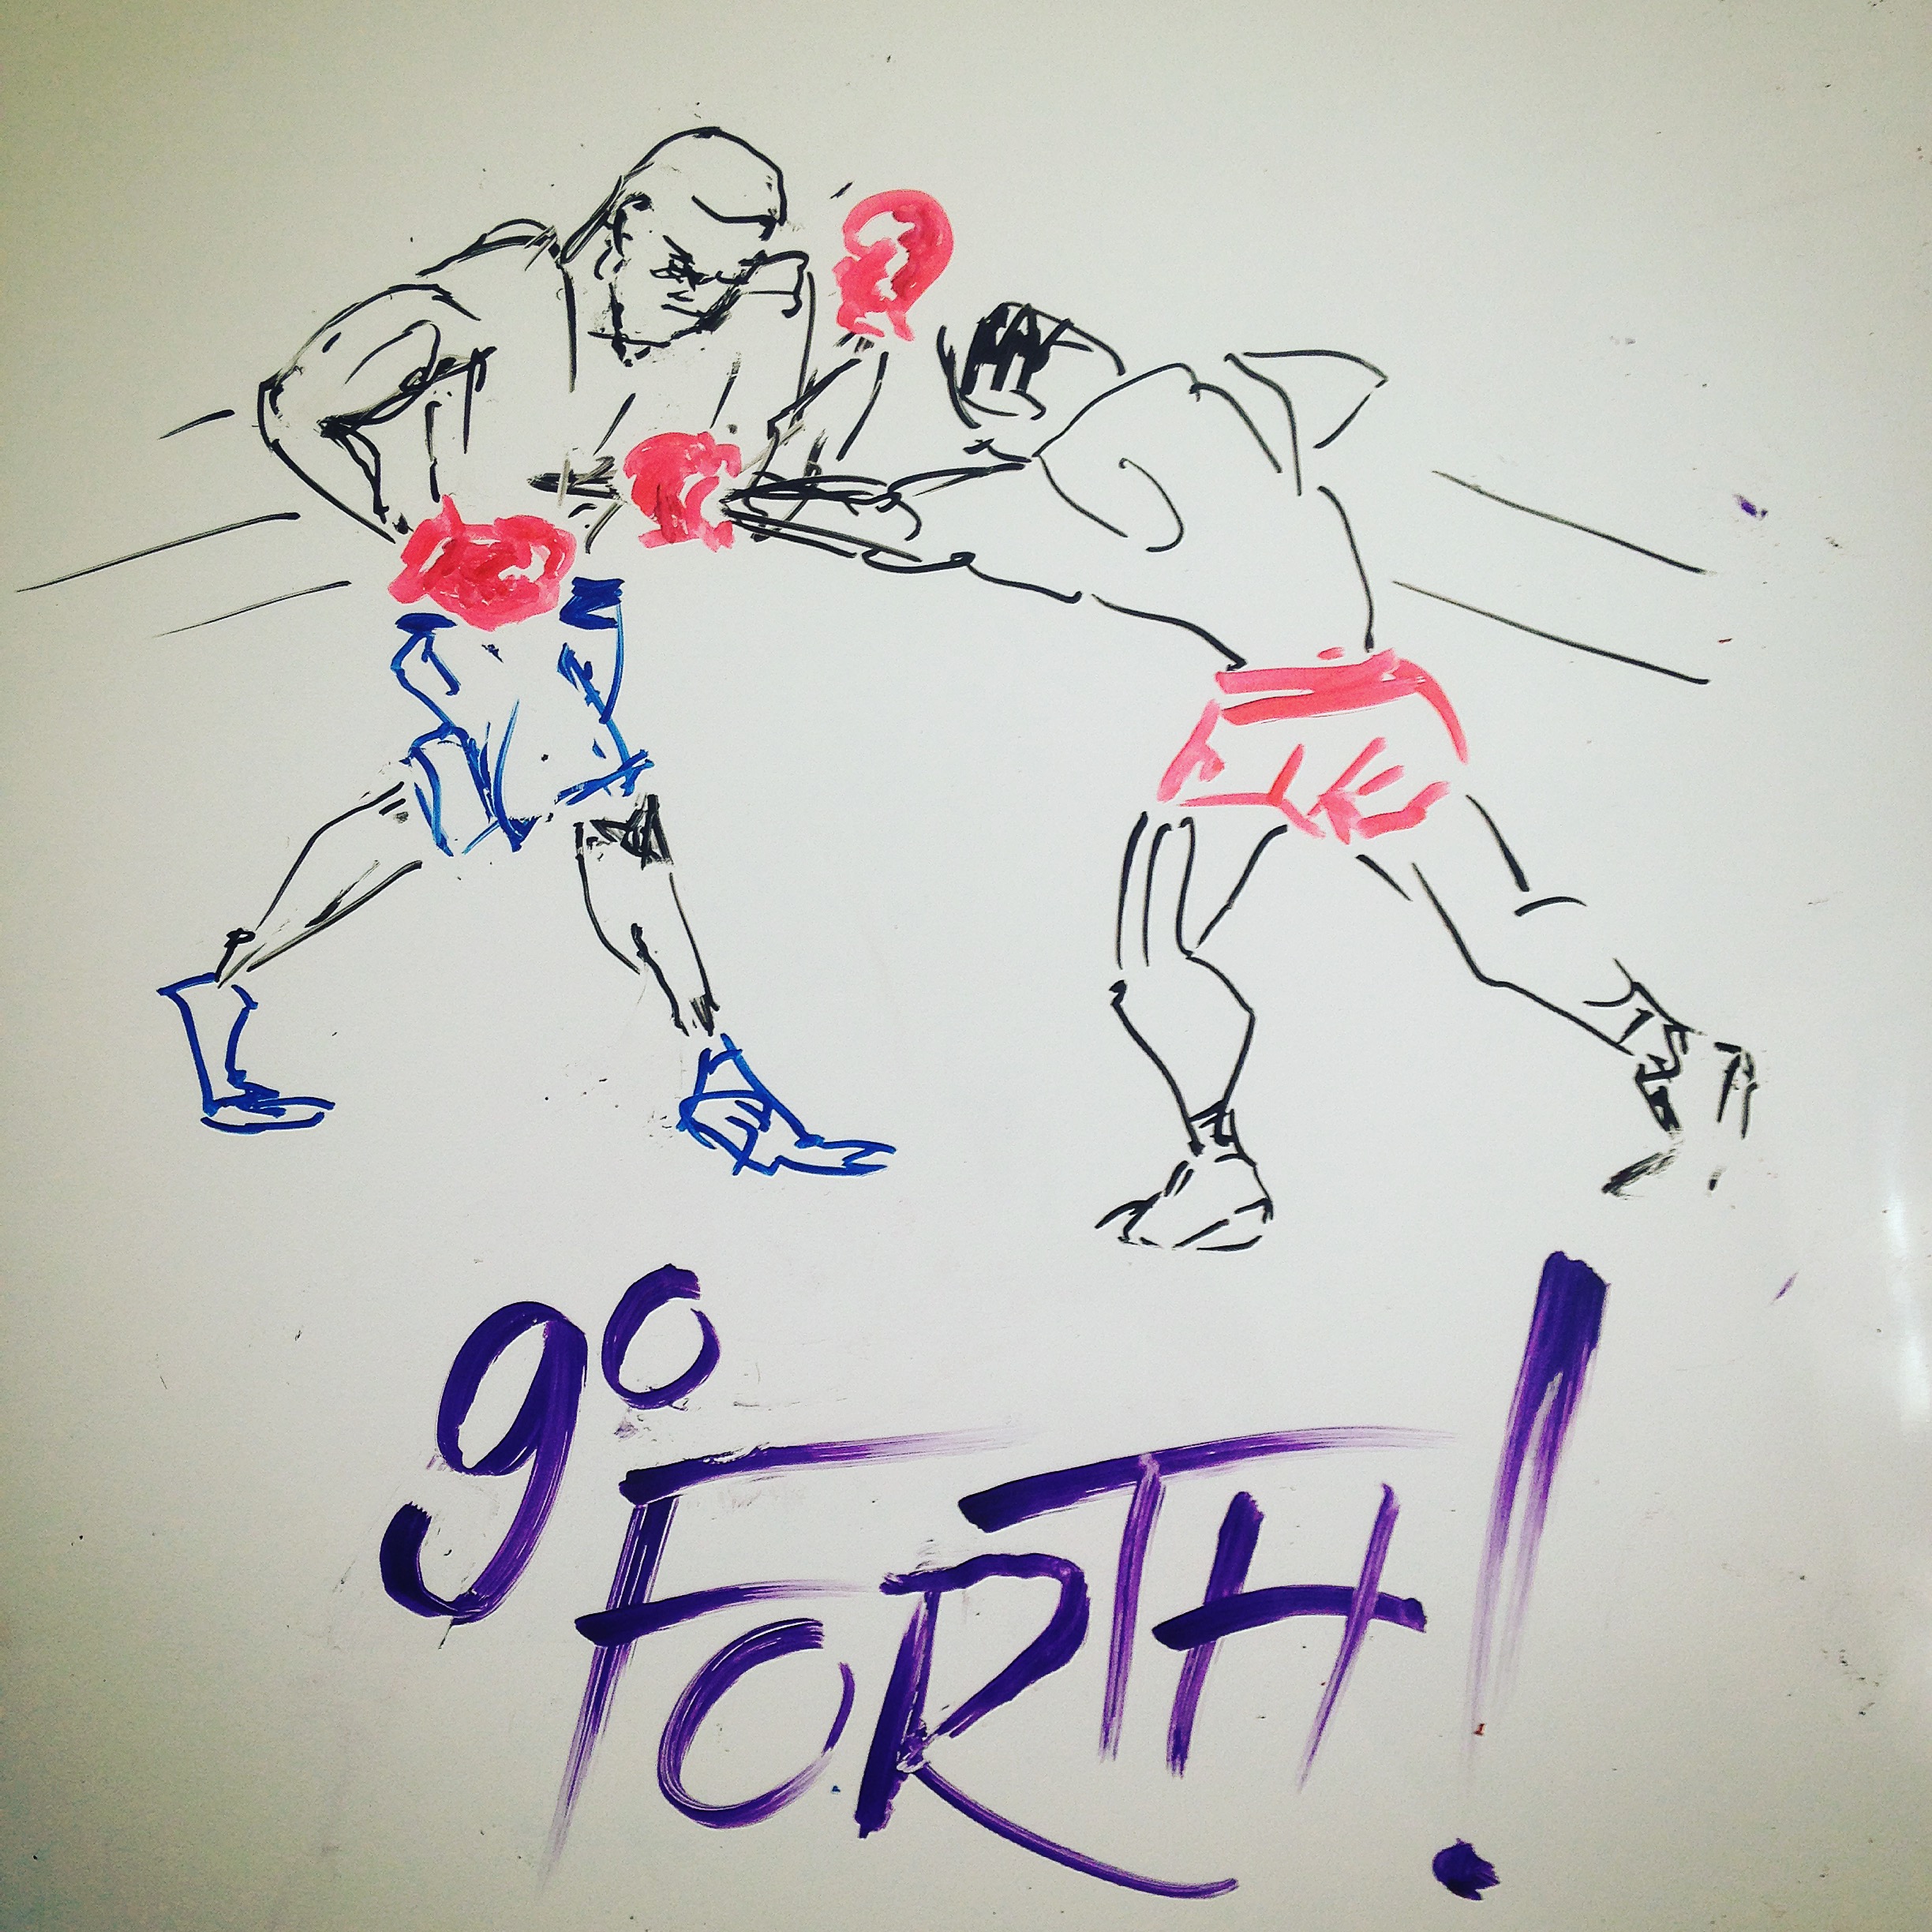 9º
FORTH!